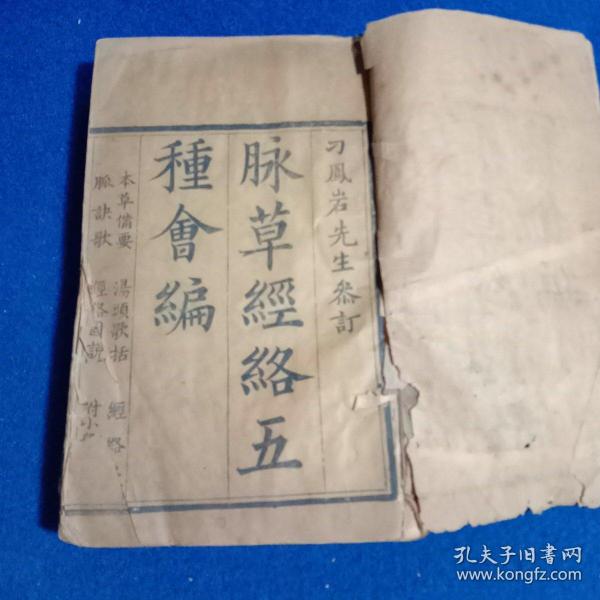 刁鳳岩先生叅訂
脉草經絡五
種會編
本草備要 湯頭歌括 經路
脈訣歌 經絡圖說 附小
孔夫子旧书网
www.kongfz.com